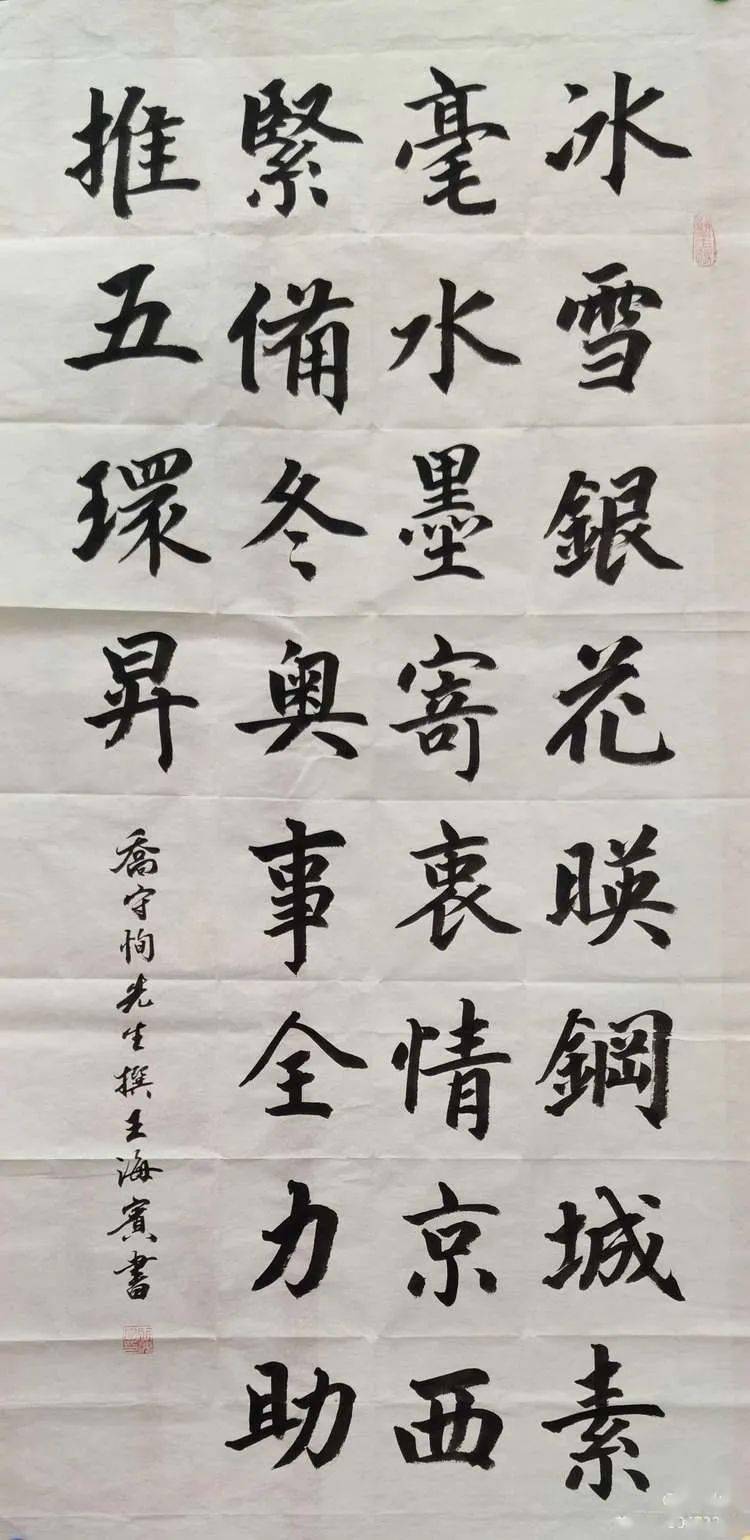 冰雪銀花暎鋼城素
毫水墨寄衷情京西
緊備冬奥事全力助
推五環昇
喬守恂先生撰王海賓書